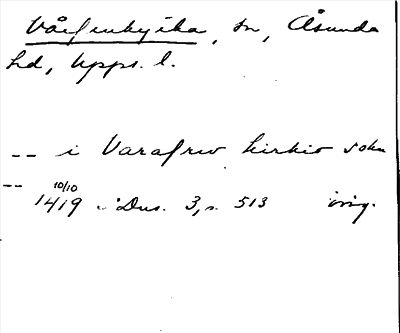 Vårfrukyrka, sn, Åsunda
hd, Upps. l.
-- i Varafrw kirkio sokn
--
10/10
1419 .. Dns. 3, s. 513 orig.